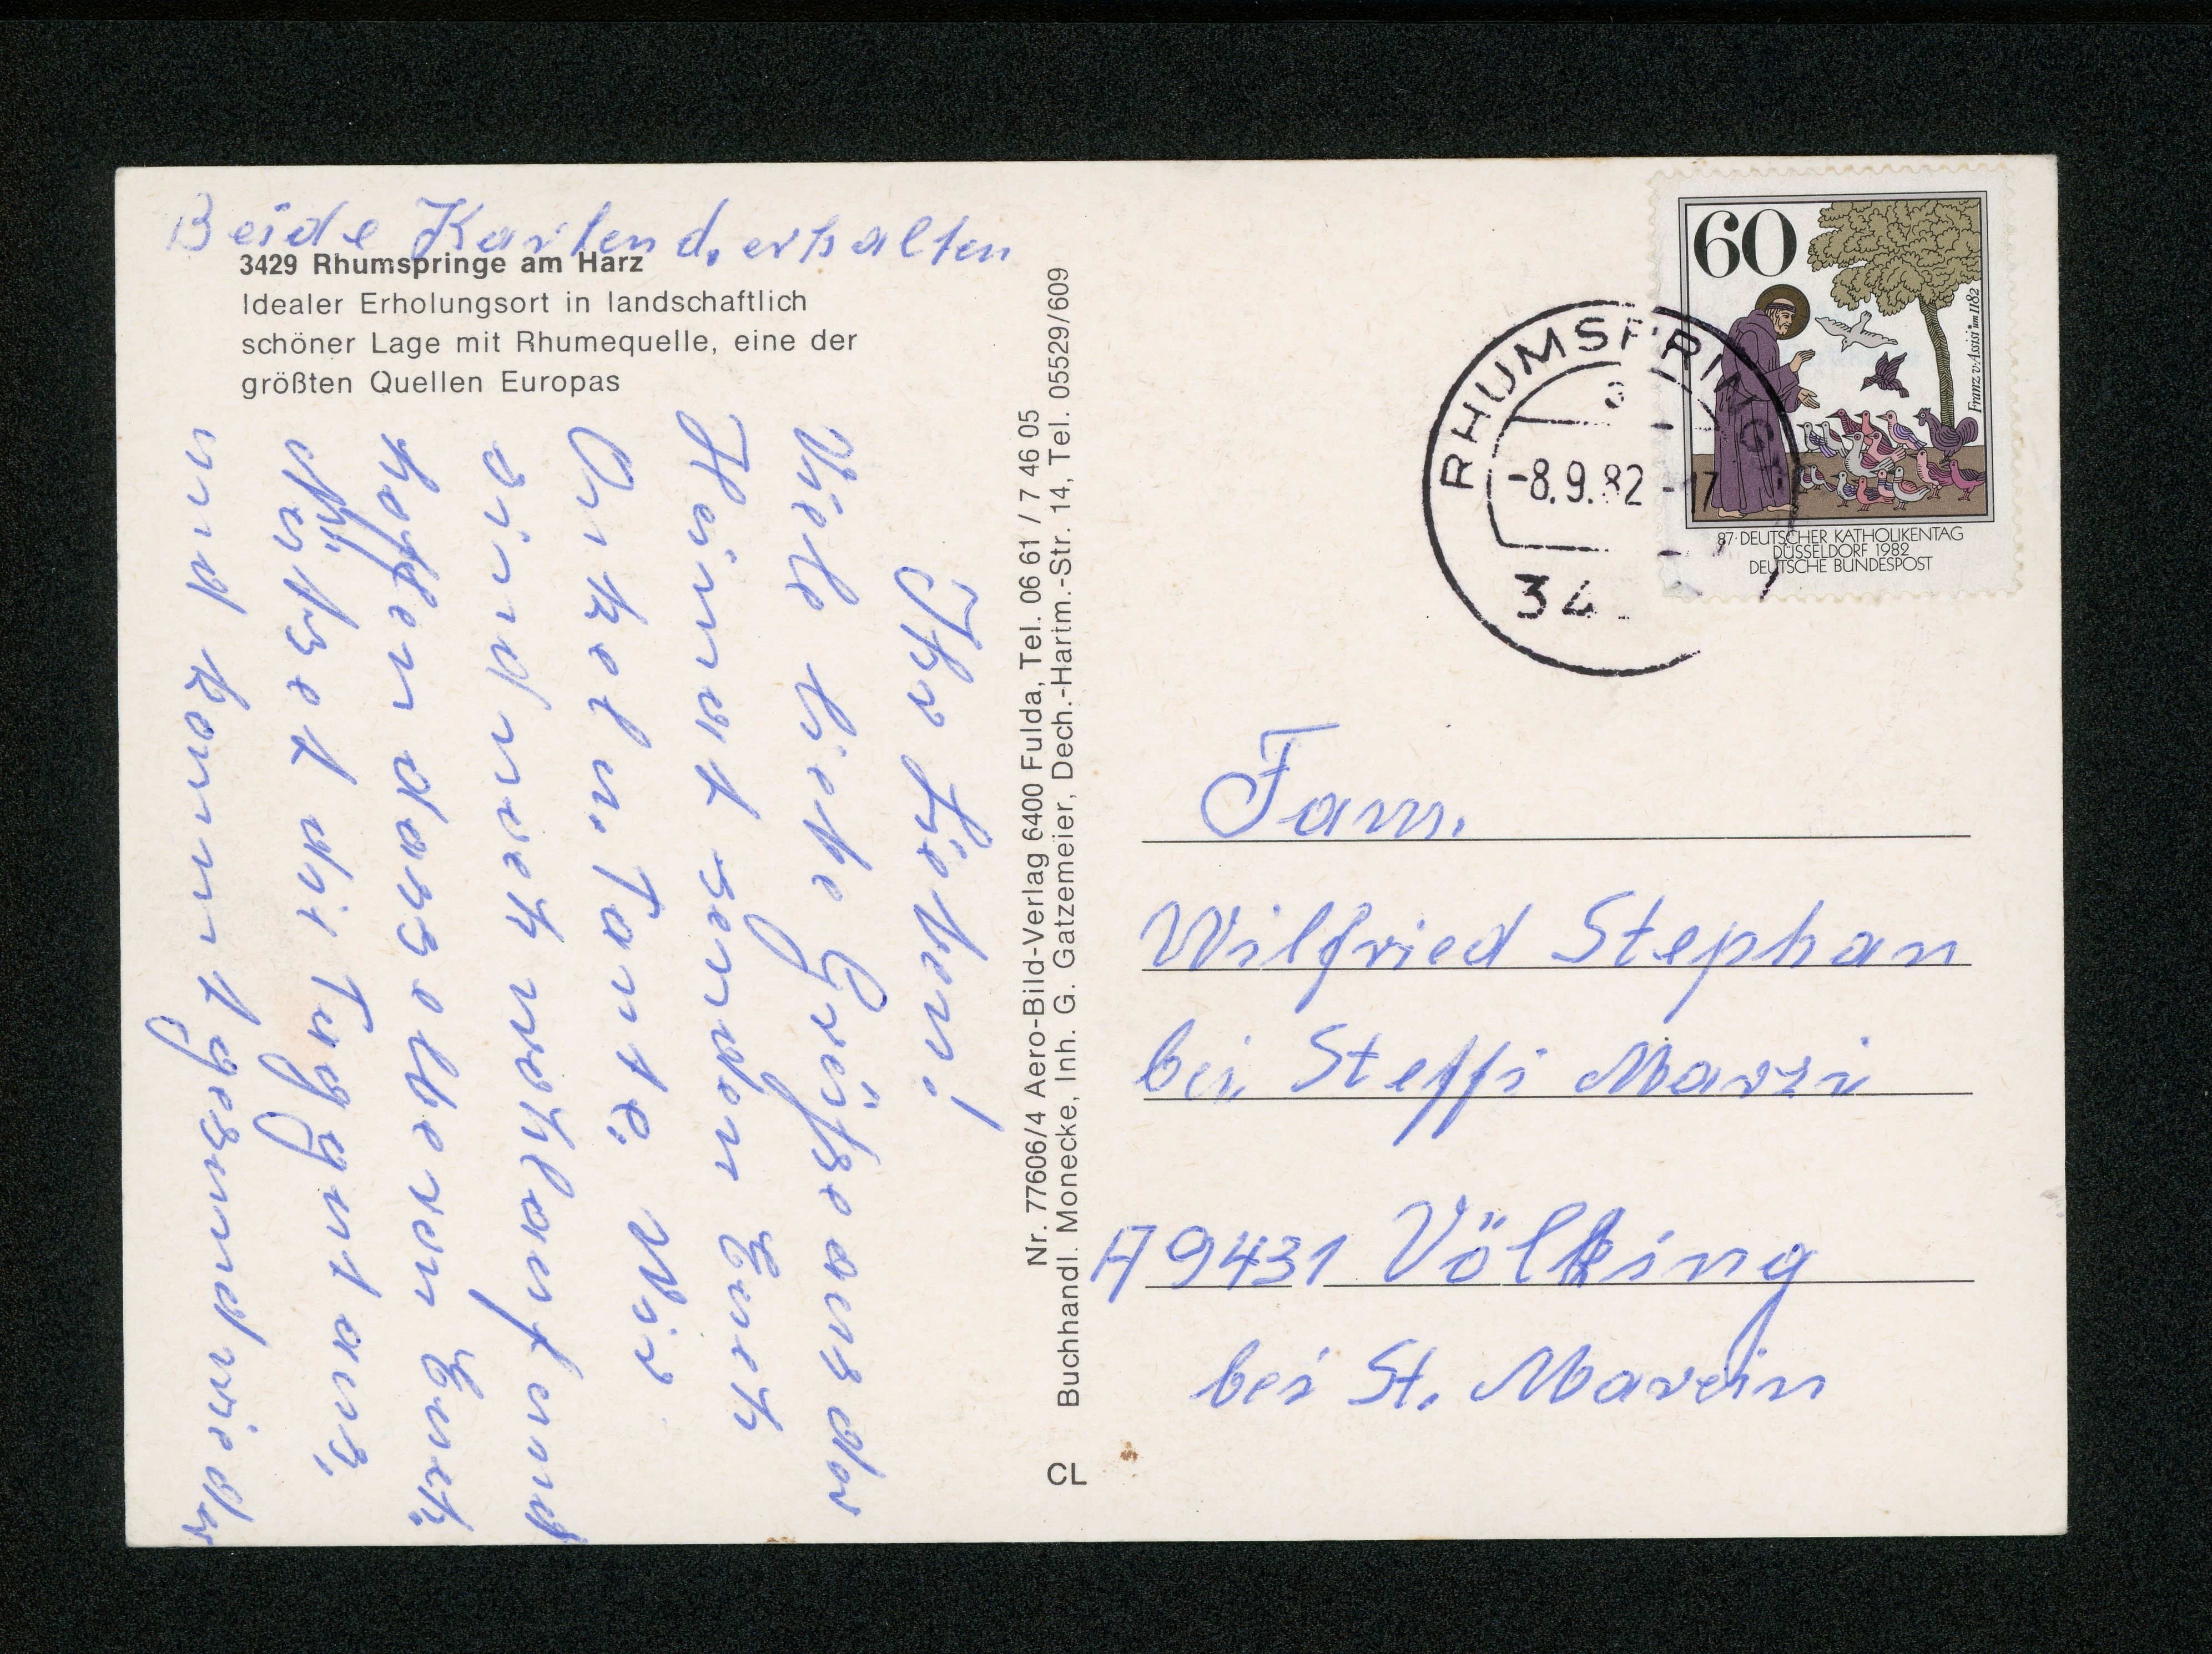 Beide Karten d. erhalten
3429 Rhumspringe am Harz
Idealer Erholungsort in landschaftlich
schöner Lage mit Rhumequelle, eine der
größten Quellen Europas
Ihr Lieben!
Viele liebe Grüße aus der
Heimat senden Euch
Onkel u. Tante. Wir
sind noch wohlauf und
hoffen dasselbe von Euch.
Nützet die Tage gut aus,
und kommt gesund wieder
Nr. 77606/4 Aero-Bild-Verlag 6400 Fulda, Tel. 06 61 / 7 46 05
Buchhandl. Monecke, Inh. G. Gatzemeier, Dech.-Hartm.-Str. 14, Tel. 05529/609
CL
60
Franz v. Assisi * um 1182
87. DEUTSCHER KATHOLIKENTAG
DÜSSELDORF 1982
DEUTSCHE BUNDESPOST
RHUMSPRINGE
-8.9.82-17
34
Fam.
Wilfried Stephan
bei Steffi Marzi
A 9431 Völking
bei St. Marein